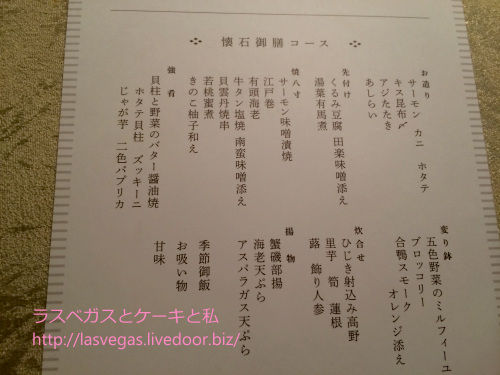 懐石御膳コース
お造り
サーモン カニ ホタテ
キス昆布〆
アジたたき
あしらい
先付け
くるみ豆腐 田楽味噌添え
湯葉有馬煮
焼八寸
サーモン味噌漬焼
江戸巻
有頭海老
牛タン塩焼 南蛮味噌添え
貝雲丹焼串
若桃蜜煮
きのこ柚子和え
強肴
貝柱と野菜のバター醤油焼
ホタテ貝柱 ズッキーニ
じゃが芋 二色パプリカ
変り鉢
五色野菜のミルフィーユ
ブロッコリー
合鴨スモーク
オレンジ添え
炊合せ
ひじき射込み高野
里芋 筍 蓮根
蕗 飾り人参
揚物
蟹磯部揚
海老天ぷら
アスパラガス天ぷら
季節御飯
お吸い物
甘味
ラスベガスとケーキと私
http://lasvegas.livedoor.biz/